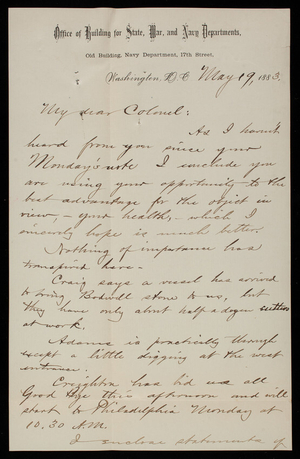 Office of Building for State, War, and Navy Departments,
Old Building, Navy Department, 17th Street,
Washington, D.C. May 19, 1883.
My dear Colonel:
As I havn't
heard from you since your
Monday's note I conclude you
are using your opportunity to the
best advantage for the object in
view, – your health, – which I
sincerely hope is much better.
Nothing of importance has
transpired here.–
Craig says a vessel has arrived
to bring Bodwell stone to us, but
they have only about half a dozen setters
at work.
Adams is practically through
except a little digging at the west
entrance.
Creighton has bid us all
Good bye this afternoon and will
start to Philadelphia Monday at
10.30 A.M.
I enclose statements of